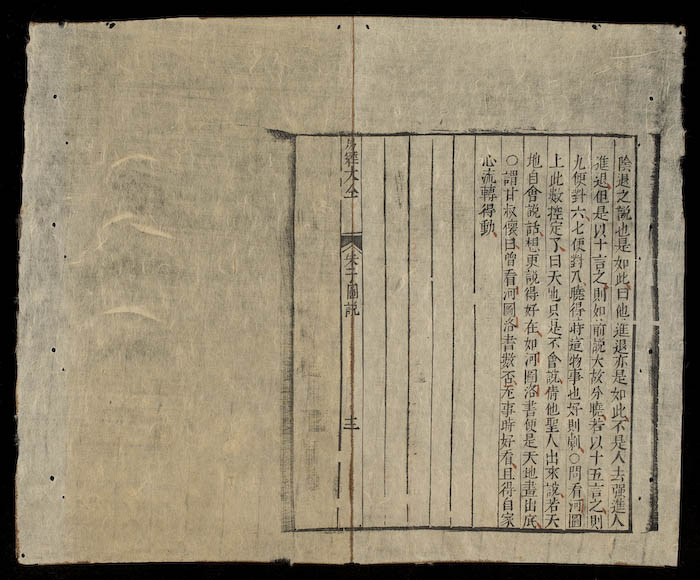 陰退之說也是如此曰他進退亦是如此不是人去强進人
進退但是以十言之則如前說大故分曉若以十五言之則
九便對六七便對八曉得時這物事也好則劇○問看河圖
上此數控定了曰天地只是不會說倩他聖人出來說若天
地自會說話想更說得好在如河圖洛書便是天地畫出底
○謂甘叔懷曰曾看河圖洛書數否无事時好看且得自家
心流轉得動
易經大全
朱子圖說
三